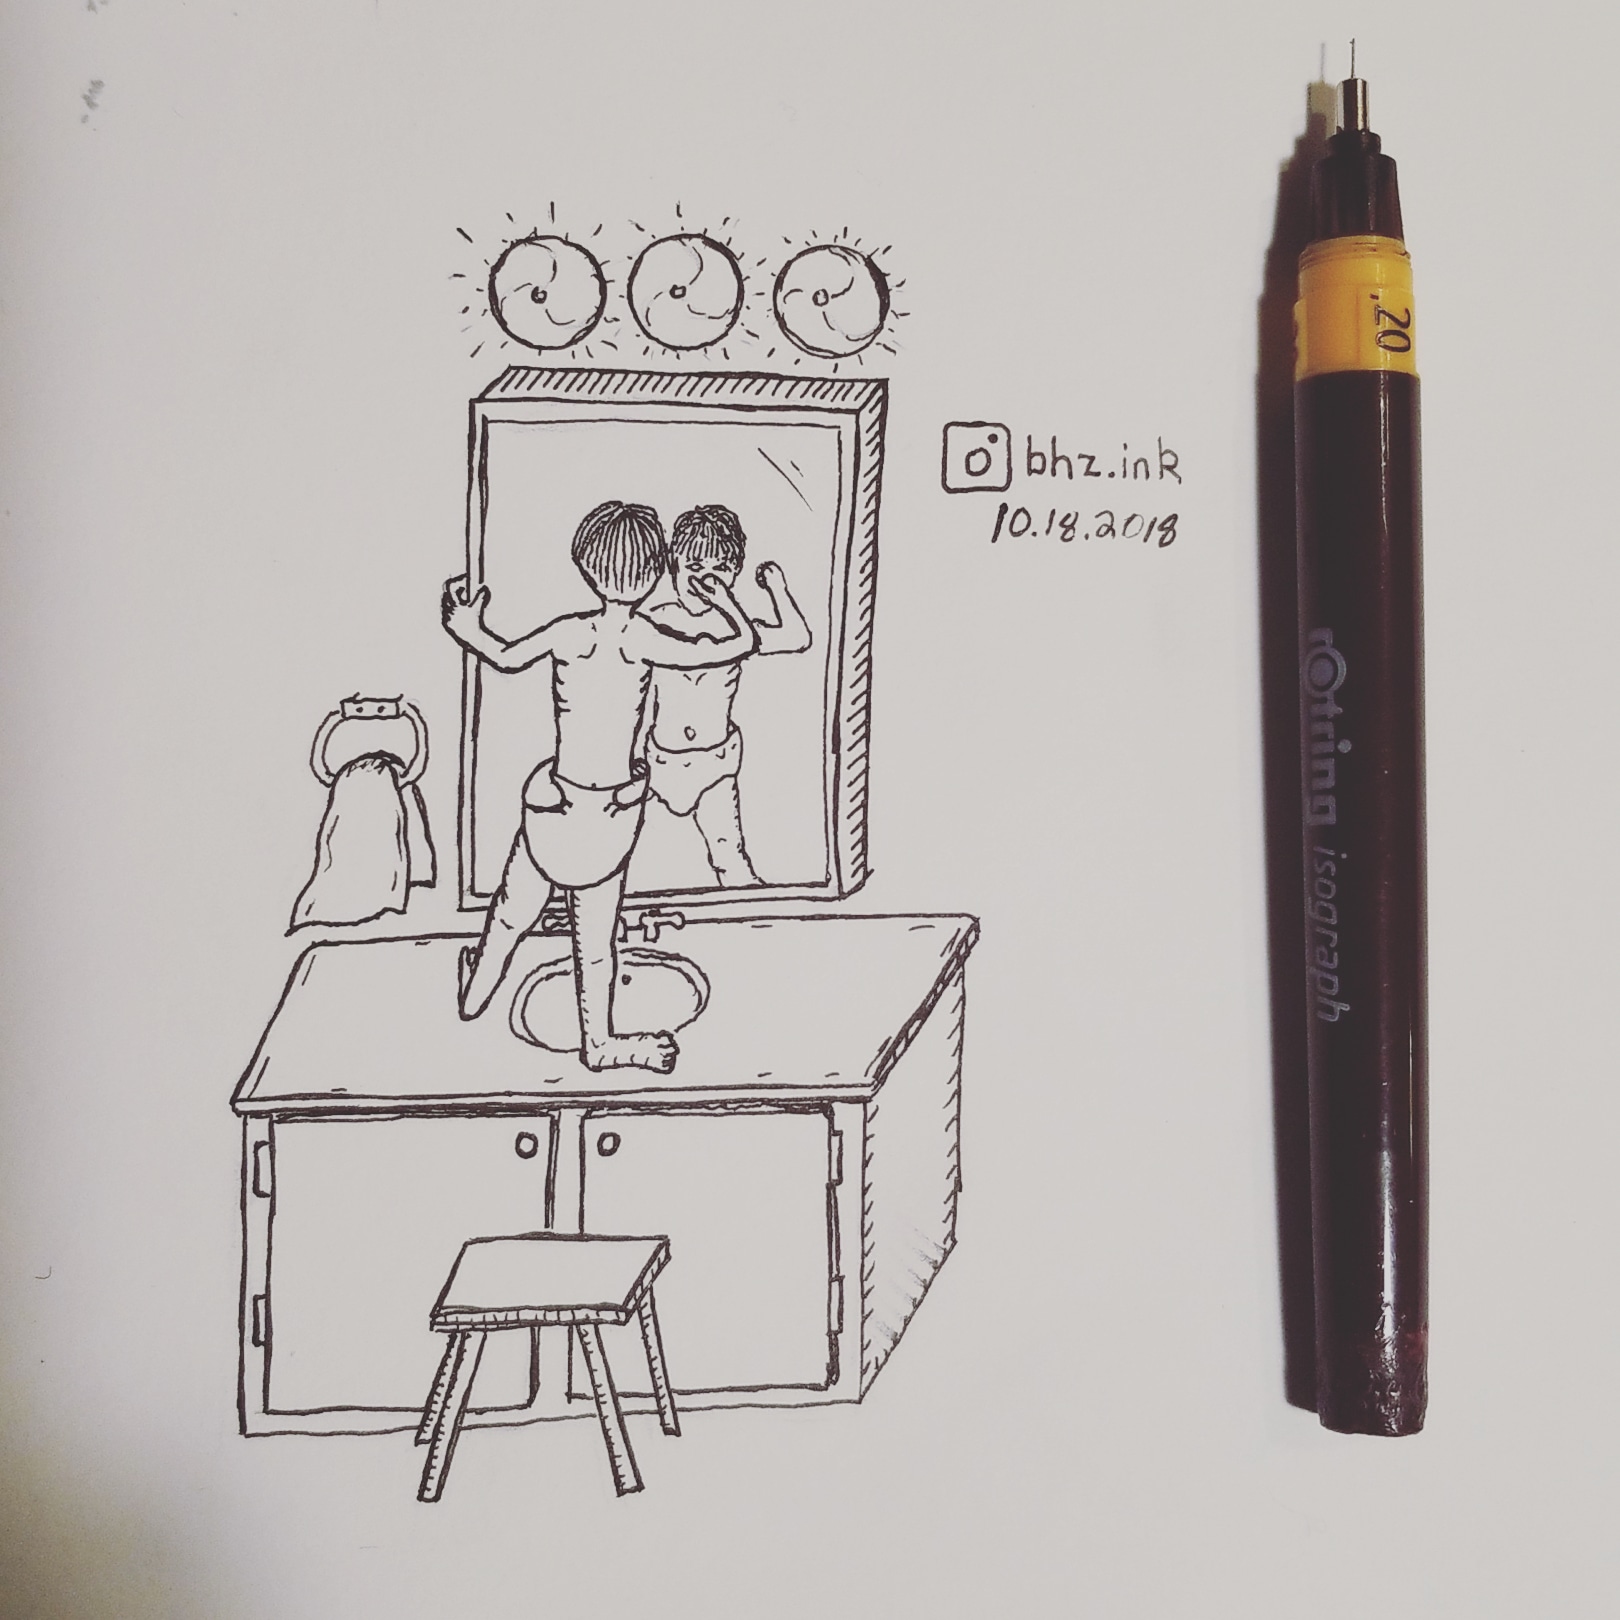 bhz.ink
10.18.2018
.20
rotring isograph